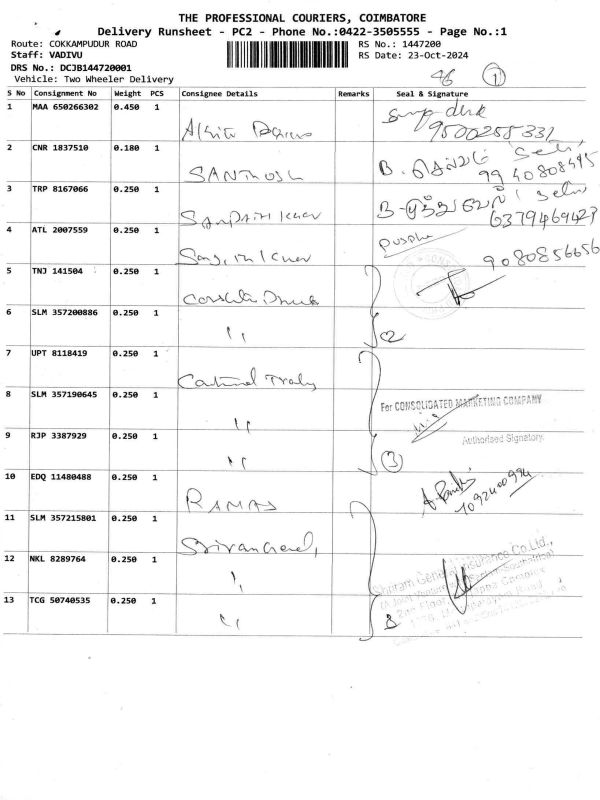 THE PROFESSIONAL COURIERS, COIMBATORE
Delivery Runsheet - PC2 - Phone No.:0422-3505555 - Page No.:1
Route: COKKAMPUDUR ROAD RS No.: 1447200
Staff: VADIVU RS Date: 23-Oct-2024
DRS No.: DCJB144720001
Vehicle: Two Wheeler Delivery 46 1
S No Consignment No Weight PCS Consignee Details Remarks Seal & Signature
1 MAA 650266302 0.450 1
9500258331
2 CNR 1837510 0.180 1 SANTHOSH B. செல்வம்
9940808495
3 TRP 8167066 0.250 1 B- முத்துவேல்
6379469423
4 ATL 2007559 0.250 1 pushpa
9080856656
5 TNJ 141504 0.250 1
6 SLM 357200886 0.250 1 ,, 2
7 UPT 8118419 0.250 1
8 SLM 357190645 0.250 1 ,, For CONSOLIDATED MARKETING COMPANY
Authorised Signatory
9 RJP 3387929 0.250 1 ,, 3
10 EDQ 11480488 0.250 1 RAMAS
11 SLM 357215801 0.250 1
12 NKL 8289764 0.250 1 ,, General Insurance Co.Ltd.,
13 TCG 50740535 0.250 1 ,, 3